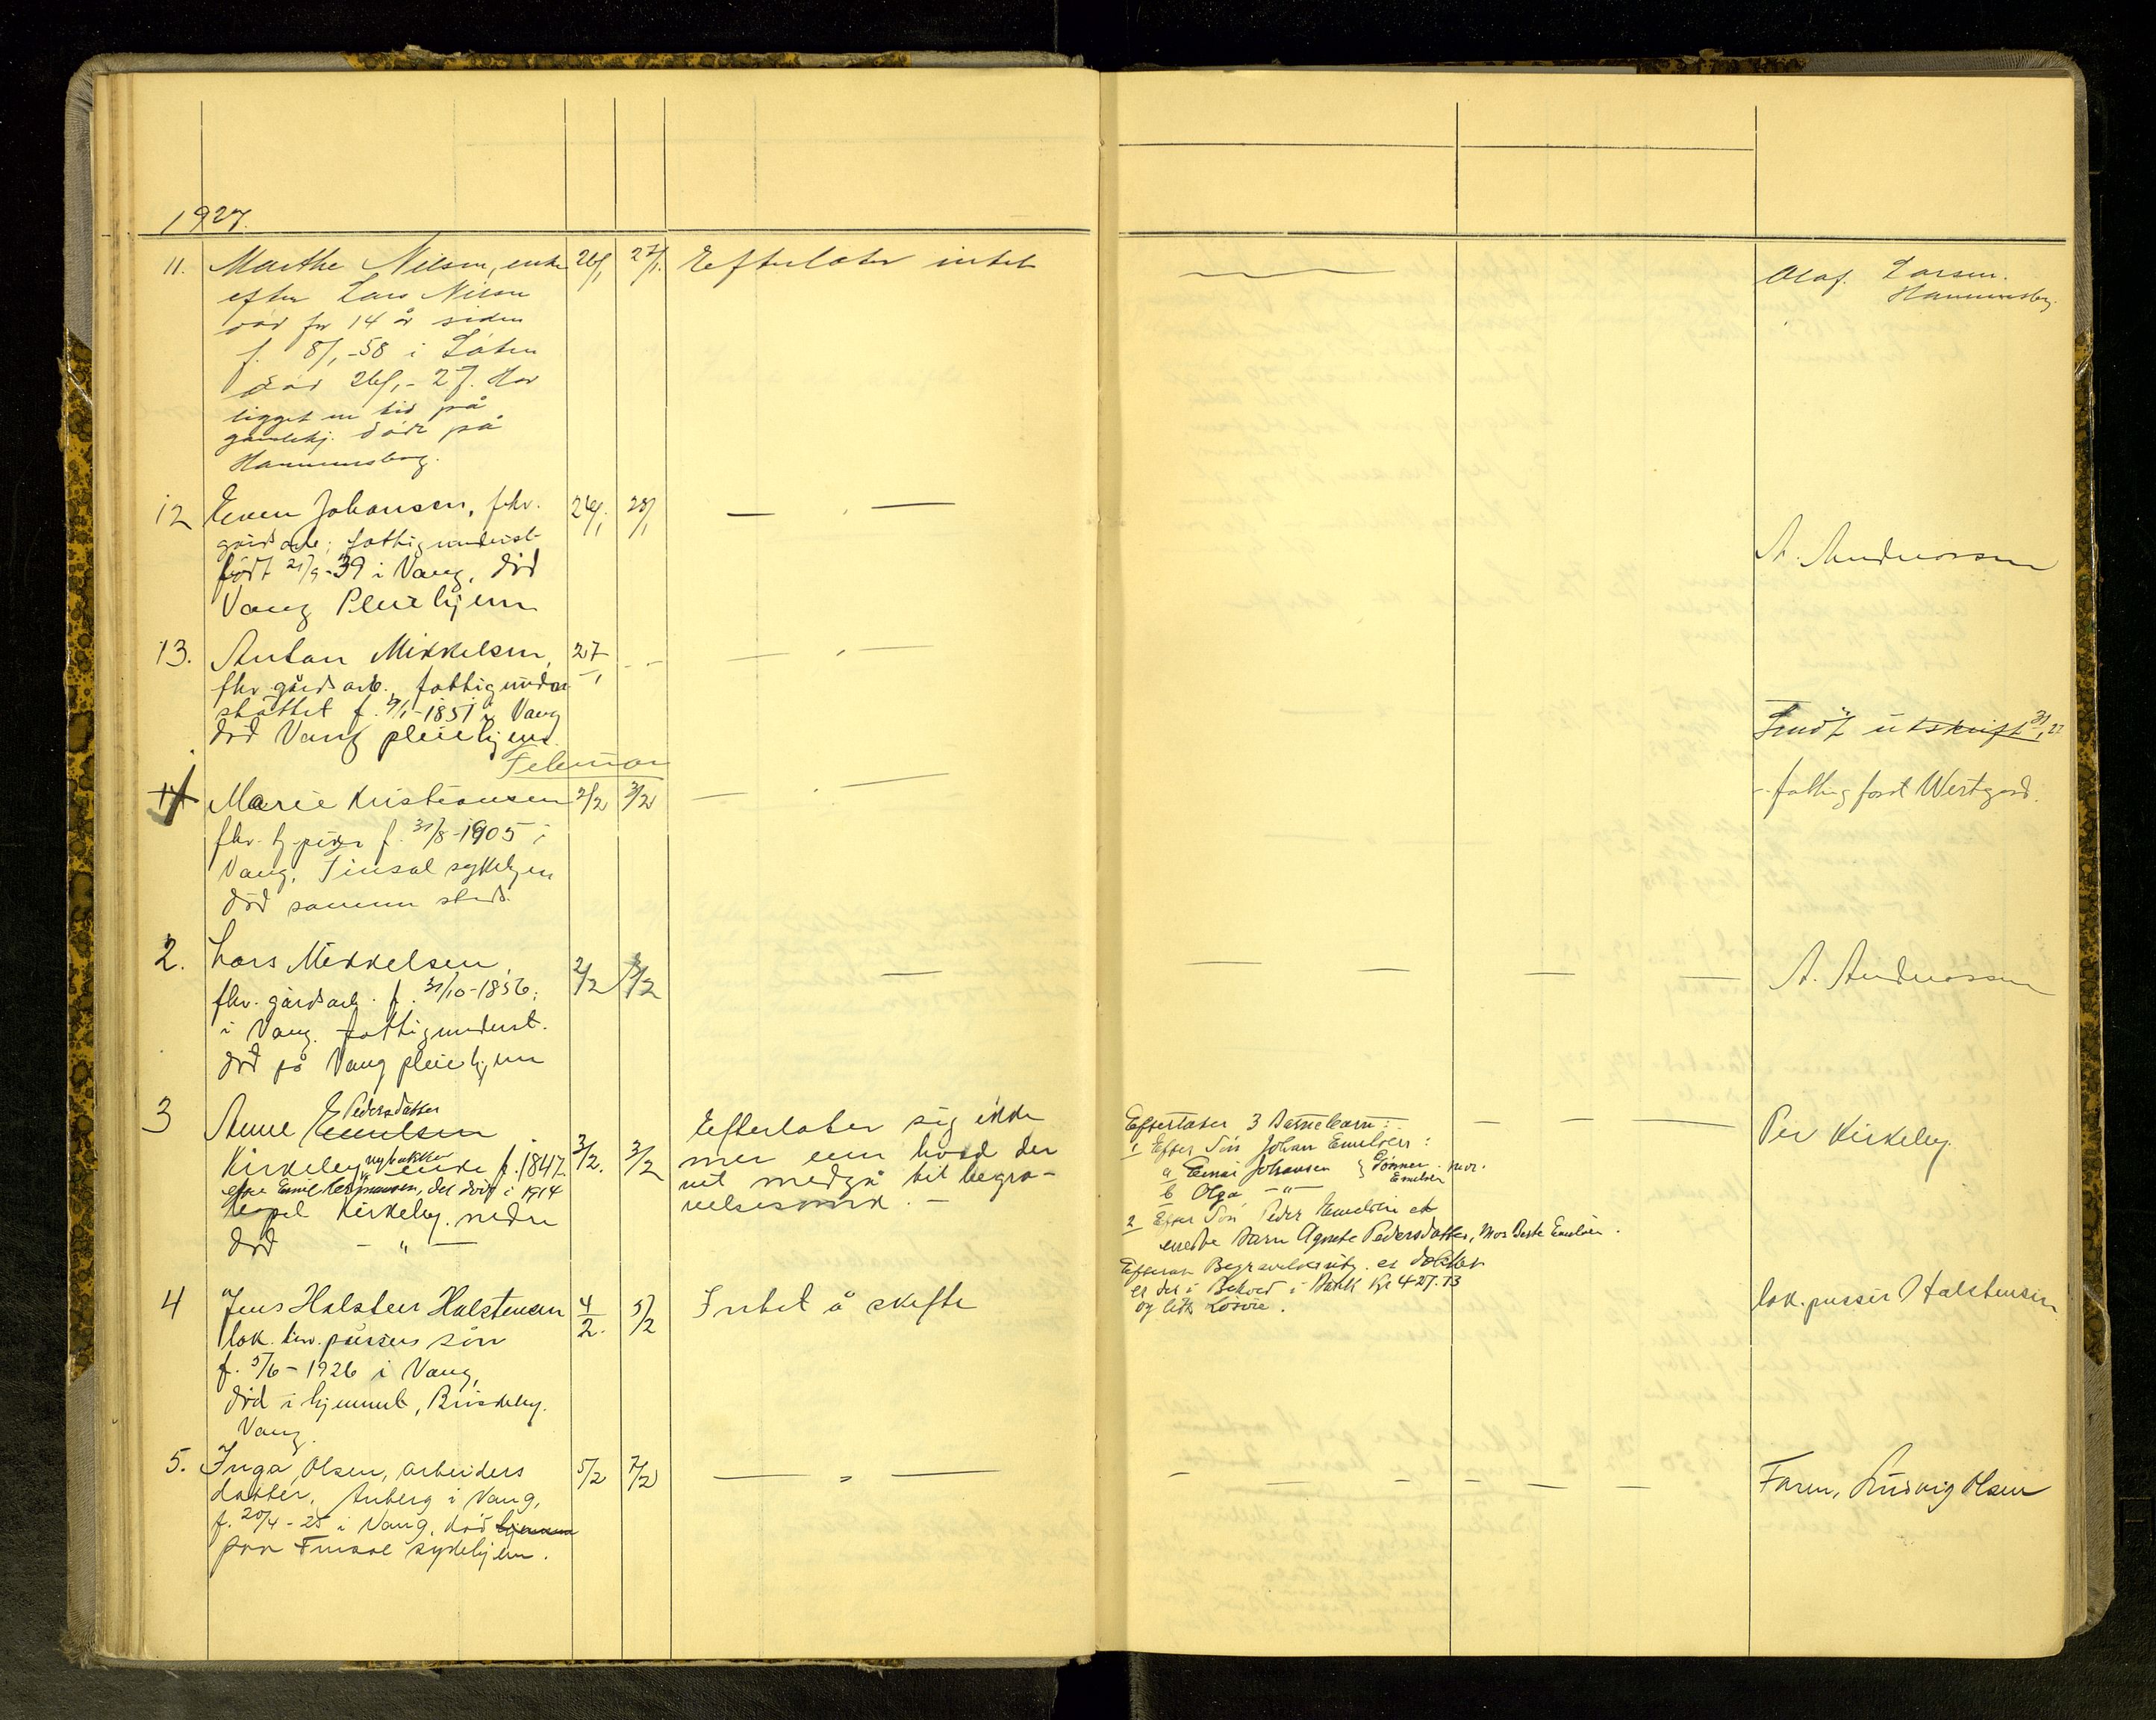 1927.
11. Marthe Nilsen, enke 26/1 27/1. Efterlater intet Olaf Larsen.
efter Lars Nilsen Hammersberg.
død for 14 år siden
f. 8/1-58 i Løten
død 26/1-27. Har
ligget en tid på
gamlehj. døde på
Hammersberg.
12 Even Johansen, fhv. 26/1 28/1 — " —
gårdsarb; fattigunderst. A. Andreassen
født 21/9-39 i Vang, død
Vang Pleiehjem
13. Anton Mikkelsen, 27/1 - - — " —
fhv gårdsarb., fattigunder
støttet f. 4/1-1851 i Vang
død Vang pleiehjem. utskrift 31/1 27
Februar
1 Marie Kristiansen 2/2 3/2 — " — fattigforst Westgård.
fhv. tj.pige f. 31/8-1905 i
Vang, Finsal sykehjem
død samme sted.
2. Lars Mikkelsen, 2/2 3/2 — — — — — A. Andreassen
fhv. gårdsarb. f. 31/10-1856
i Vang. fattigunderst.
død på Vang pleiehjem
3 Anne Emilsen Pedersdatter
Kirkeby nybakken enke f. 1847 3/2. 3/2 Efterlater sig ikke
efter Emil, død i 1914 mer enn hvad der
Kirkeby nedre vil medgå til begra-
død — " — velsesomk. —
Efterlater 3 Barnebarn: — — — Per Kirkeby.
1 Efter Søn Johan Emilsen:
a Einar Johansen
b Olga — " —
2 Efter Søn Peder Emilsen et
eneste Barn Agnete Pedersdatter, Mor Berte Emilsen.
Efterat Begravelsesutg. er dækket
er der i Behold i Bank Kr 427.13
og litt Løsøre.
4 Jens Halsten Halstensen 4/2. 5/2 Intet å skifte lok.pusser Halstensen
lok. pussers søn
f. 5/6-1926 i Vang,
død i hjemmet, Briskeby.
Vang.
5. Inga Olsen, arbeiders 5/2 7/2 — " — — — — — — Faren, Ludvig Olsen
datter, Anberg i Vang,
f. 20/4-25 i Vang, død hjemme
paa Finsal sykehjem.